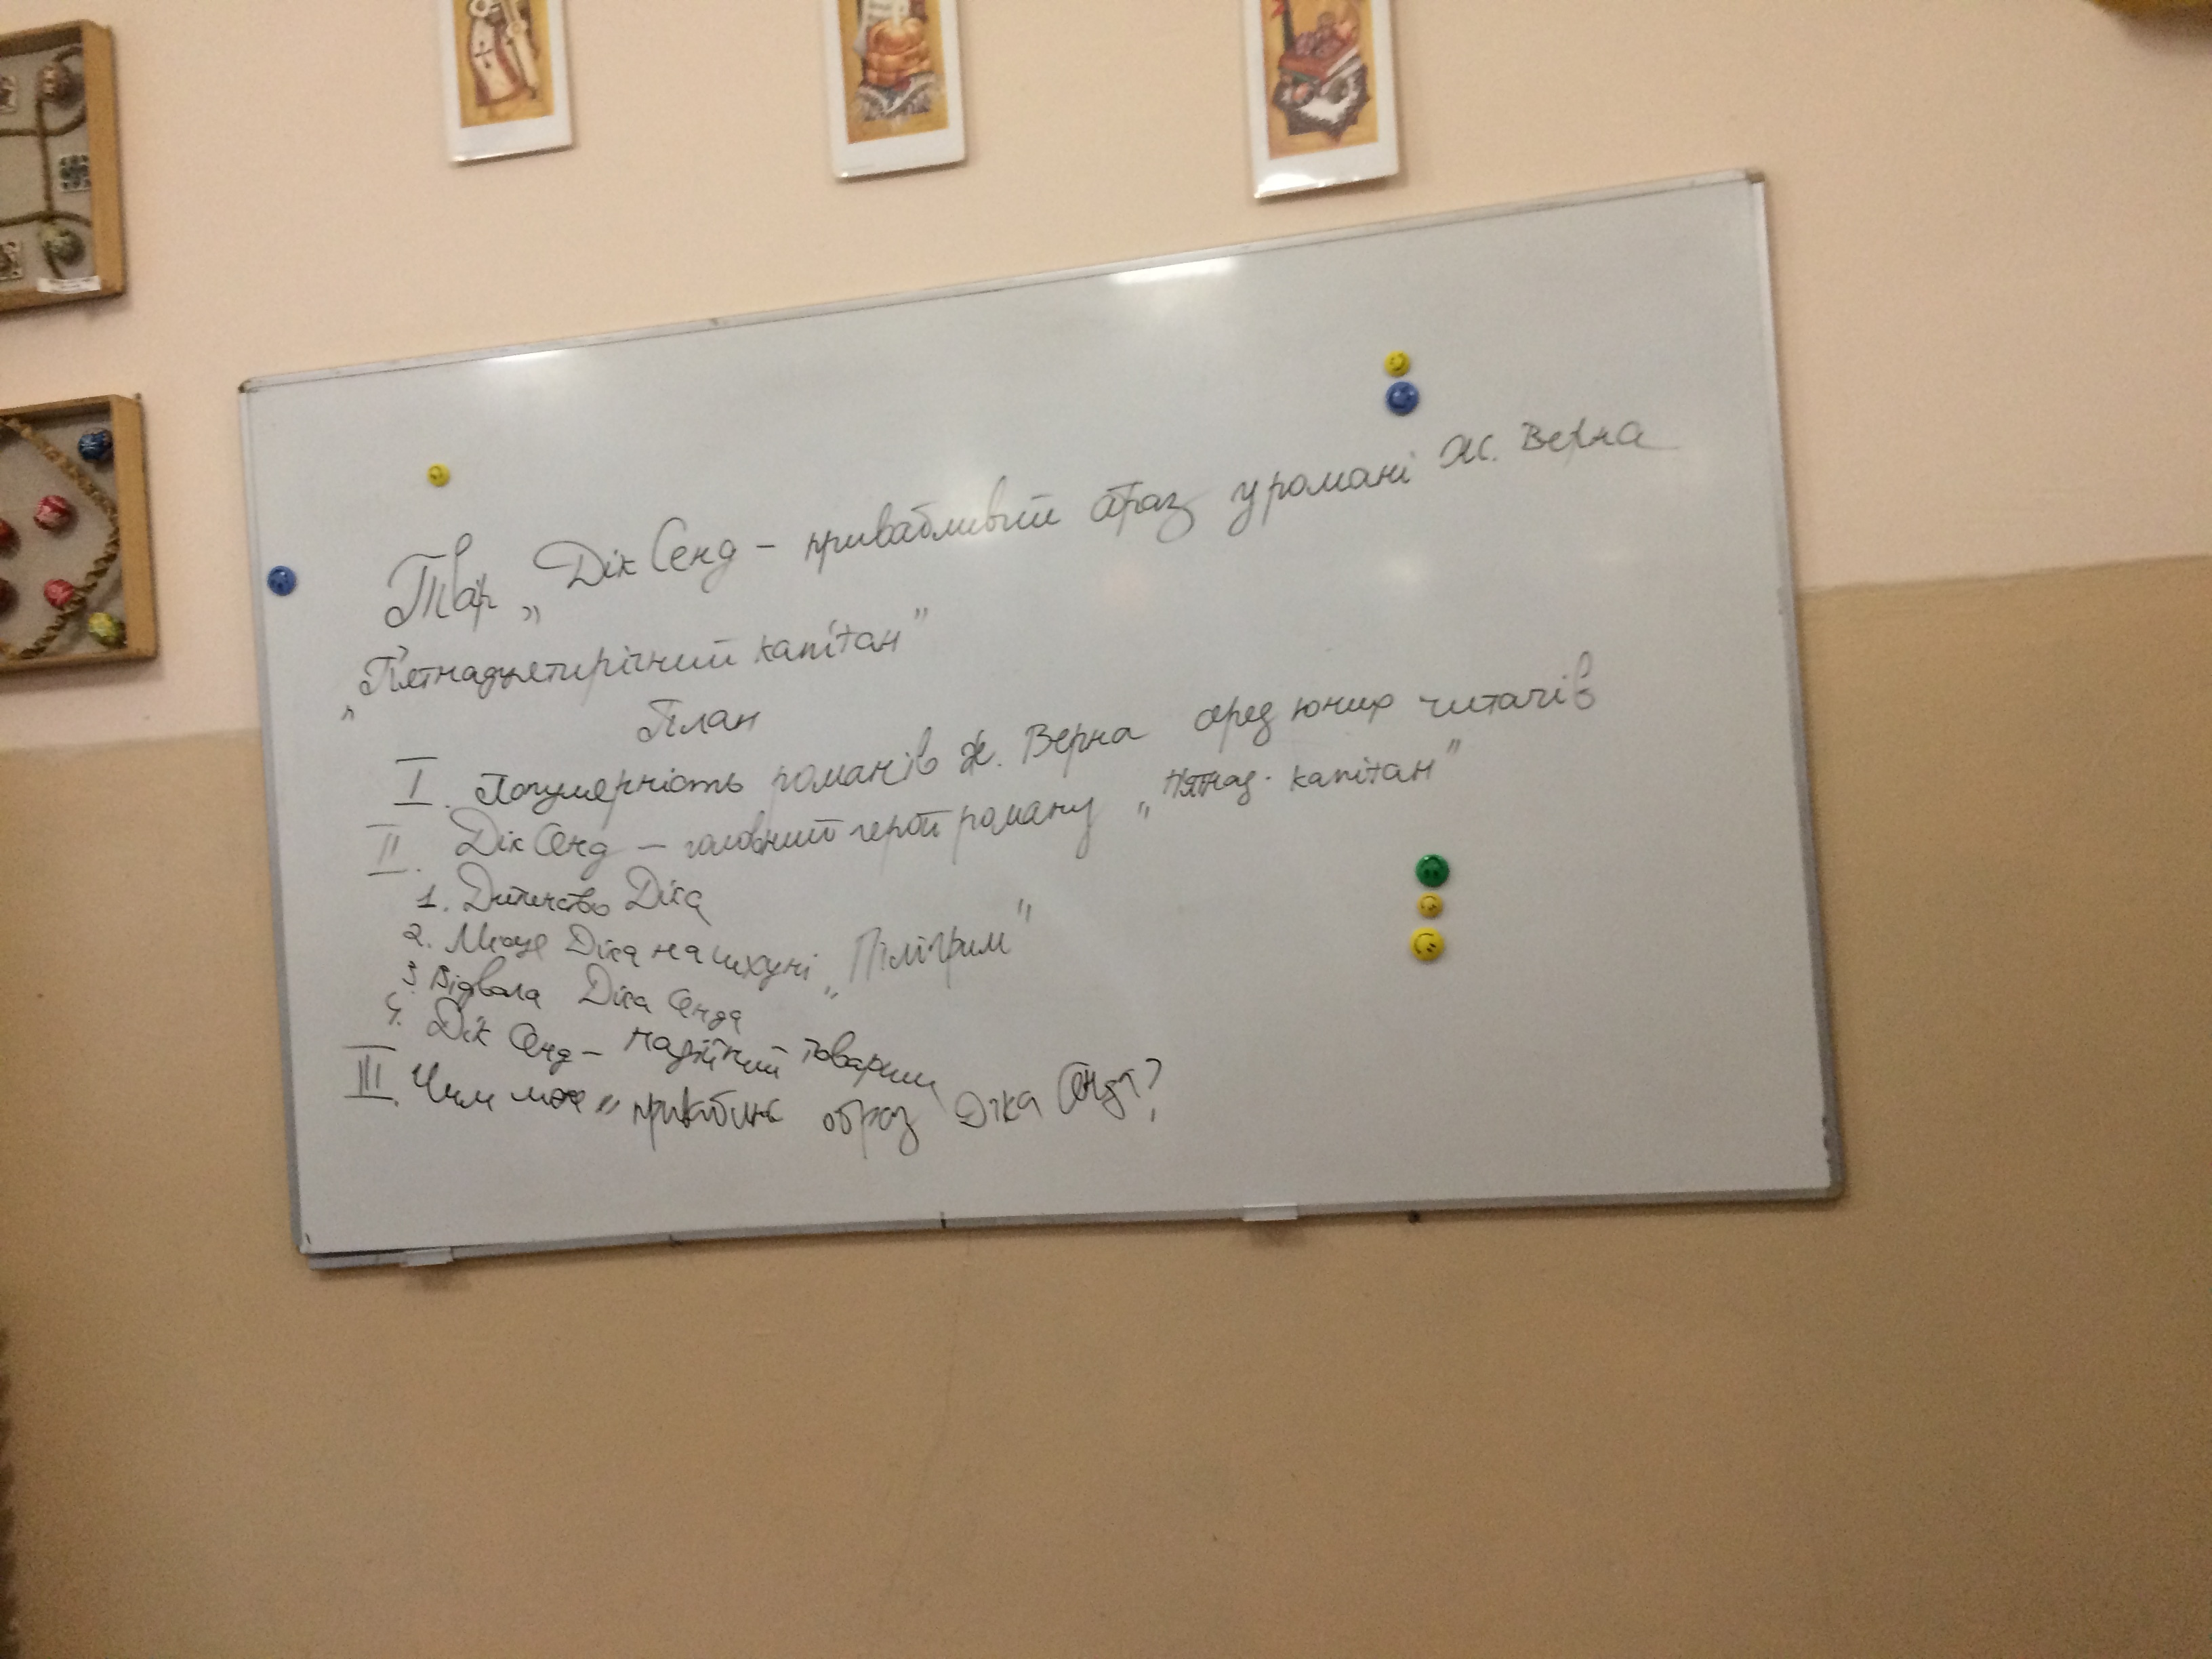 Твір „Дік Сенд – привабливий образ у романі Ж. Верна
„П'ятнадцятирічний капітан"
План
I. Популярність романів Ж. Верна серед юних читачів
II. Дік Сенд – головний герой роману „П'ятнад. капітан"
1. Дитинство Діка
2. Місце Діка на шхуні „Пілігрим"
3. Відвага Діка Сенда
4. Дік Сенд – надійний товариш
III. Чим мене приваблює образ Діка Сенда?